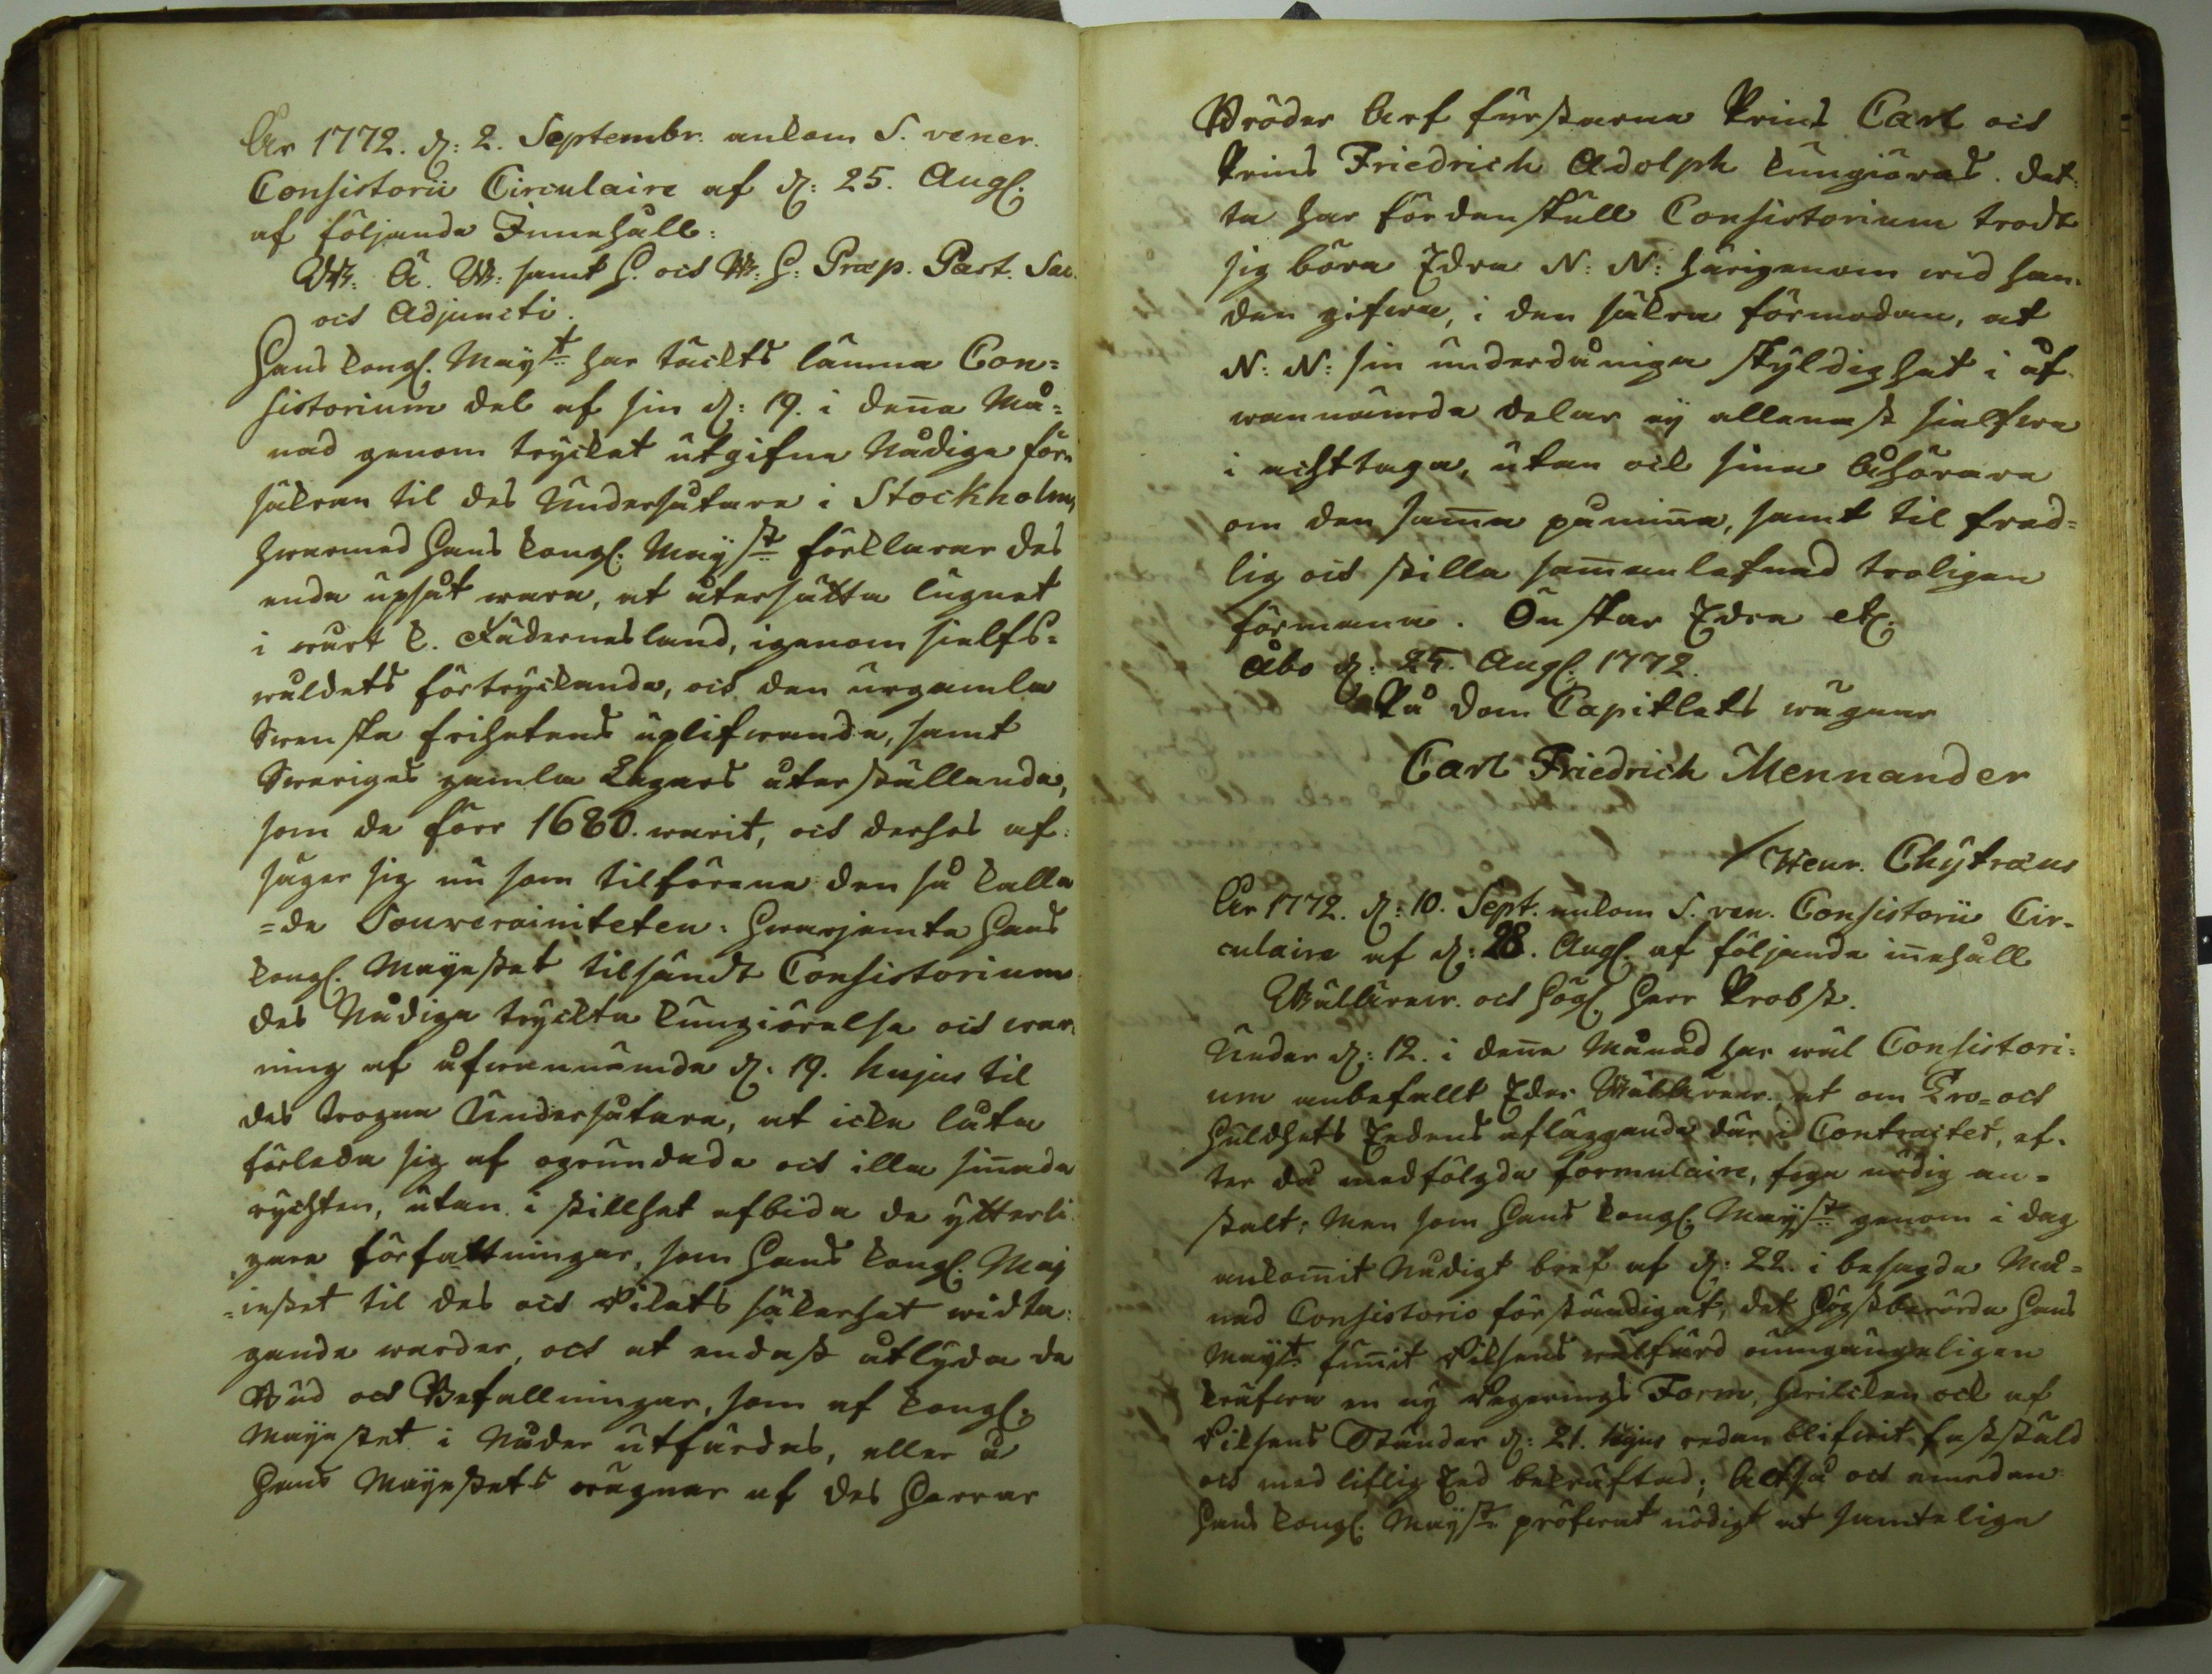 År 1772. d: 2. Septembr. ankom S. vener.
Consistorii Circulaire af d: 25. Aug:
af följande Innehåll:
W. Ä. W: samt H. och W: H: Præp. Past. Sac.
och Adjuncti.
Hans Kongl. Maÿt har täckts lämna Con=
sistorium del af sin d: 19. i denna Må=
nad genom tryckt utgifne Nådiga för=
säkran til des Undersåtare i Stockholm,
hwarmed Hans Kongl. Maÿst förklarar des
enda upsåt wara, at återsätta lugnet
i wårt k. Fädernesland, igenom sielfs=
wåldets förtryckande, och den urgamla
Swenska frihetens uplifwande, samt
Sweriges gamla Lagars återställande,
som de förr 1680. warit, och derhos af:
säger sig nu som tilförene den så kalla
=de Souverainiteten: hwarjemte Hans
Kongl. Maÿestet tilsändt Consistorium
des Nådiga tryckta kungiörelse och war
ning af åfwannämde d: 19. hujus til
des trogne Undersåtare, at icke låta
förleda sig af ogrundade och illa sinnade
rychten, utan i stillhet afbida de ÿtterli
gare författningar, som Hans Kongl. Maj
=estet til des och Rikets säkerhet widta:
gande warder, och at endast åtlÿda de
Bud och Befallningar, som af Kongl:
Maÿestet i Nåder utfärdas, eller å
Hans Maÿestets wägnar af des Herrar
Bröder Arf furstarne Prins Carl och
Prins Friedrich Adolph kungiöras. Det:
ta har fördenskull Consistorium trodt
sig böra Edra N: N: härigenom wid han=
den gifwa, i den säkra förmodan, at
N: N: sin underdåniga skÿldighet i åf
wannämde delar eÿ allenast sielfwe
i achttaga, utan ock sina Åhörare
om den samma påminna, samt til fred=
lig och stilla sammanlefnad troligen
förmana. Önskar Edra etc:
Åbo d: 25. Aug: 1772.
På Dom Capitlets wägnar
Carl Friedrich Mennander
/Henr. Chÿtræus
År 1772. d: 10. Sept. ankom S. ven. Consistorii Cir=
culaire af d: 28. Aug: af följande innehåll
Wälärew. och Högl. Herr Probst.
Under d: 12. i denne Månad har wäl Consistori=
um anbefallt Eder Wälärew. at om Tro= och
Huldhets Eedens afläggande där i Contractet, ef=
ter då medfölgde formulaire, foga nödig an=
stalt; Men som Hans Kongl. Maÿst genom i dag
ankommit Nådigt bref af d: 22. i besagde Må=
nad Consistorio förständigat, det Högstberörde Hans
Maÿt funnit Riksens wälfärd oumgängeligen
kräfwa en nÿ Regerings Form, hwilcken ock af
Riksens Ständer d: 21. hujus redan blifwit fastställd
och med liflig Eed bekräftad; Altså och emedan
Hans Kongl. Maÿst pröfwat nödigt at samtelige